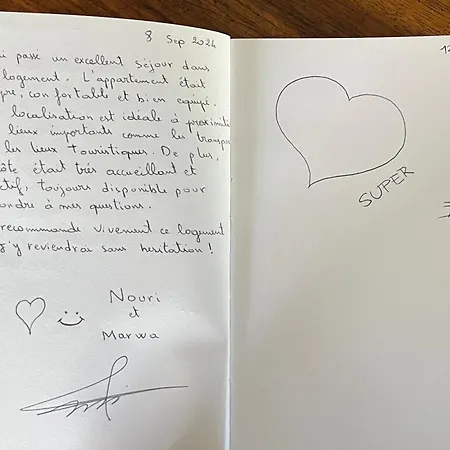 8 Sep 2024
i passé un excellent séjour dans
logement. L'appartement était
pre, confortable et bien equipé.
localisation est idéale à proximit
lieux importants comme les transpo
les lieux Touristiques. De plus,
ôte était très accueillant et
ctif, toujours disponible pour
ondre à mes questions.
recommande vivement ce logement
j'y reviendrai sans hesitation !
Nouri
et
Marwa
12
SUPER